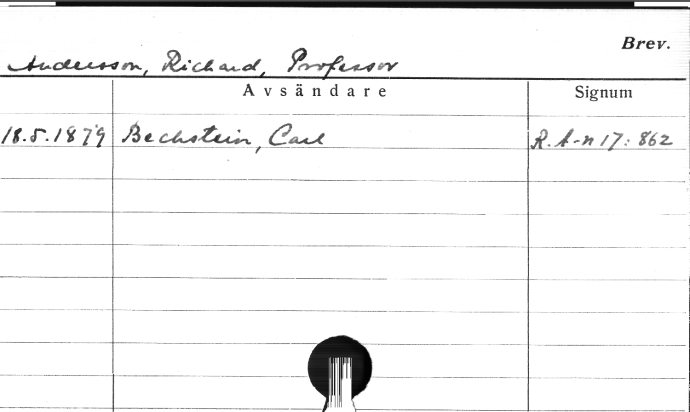 Brev.
Andersson, Richard, Professor
Avsändare Signum
18.5.1879 Bechstein, Carl R. A-n 17: 862